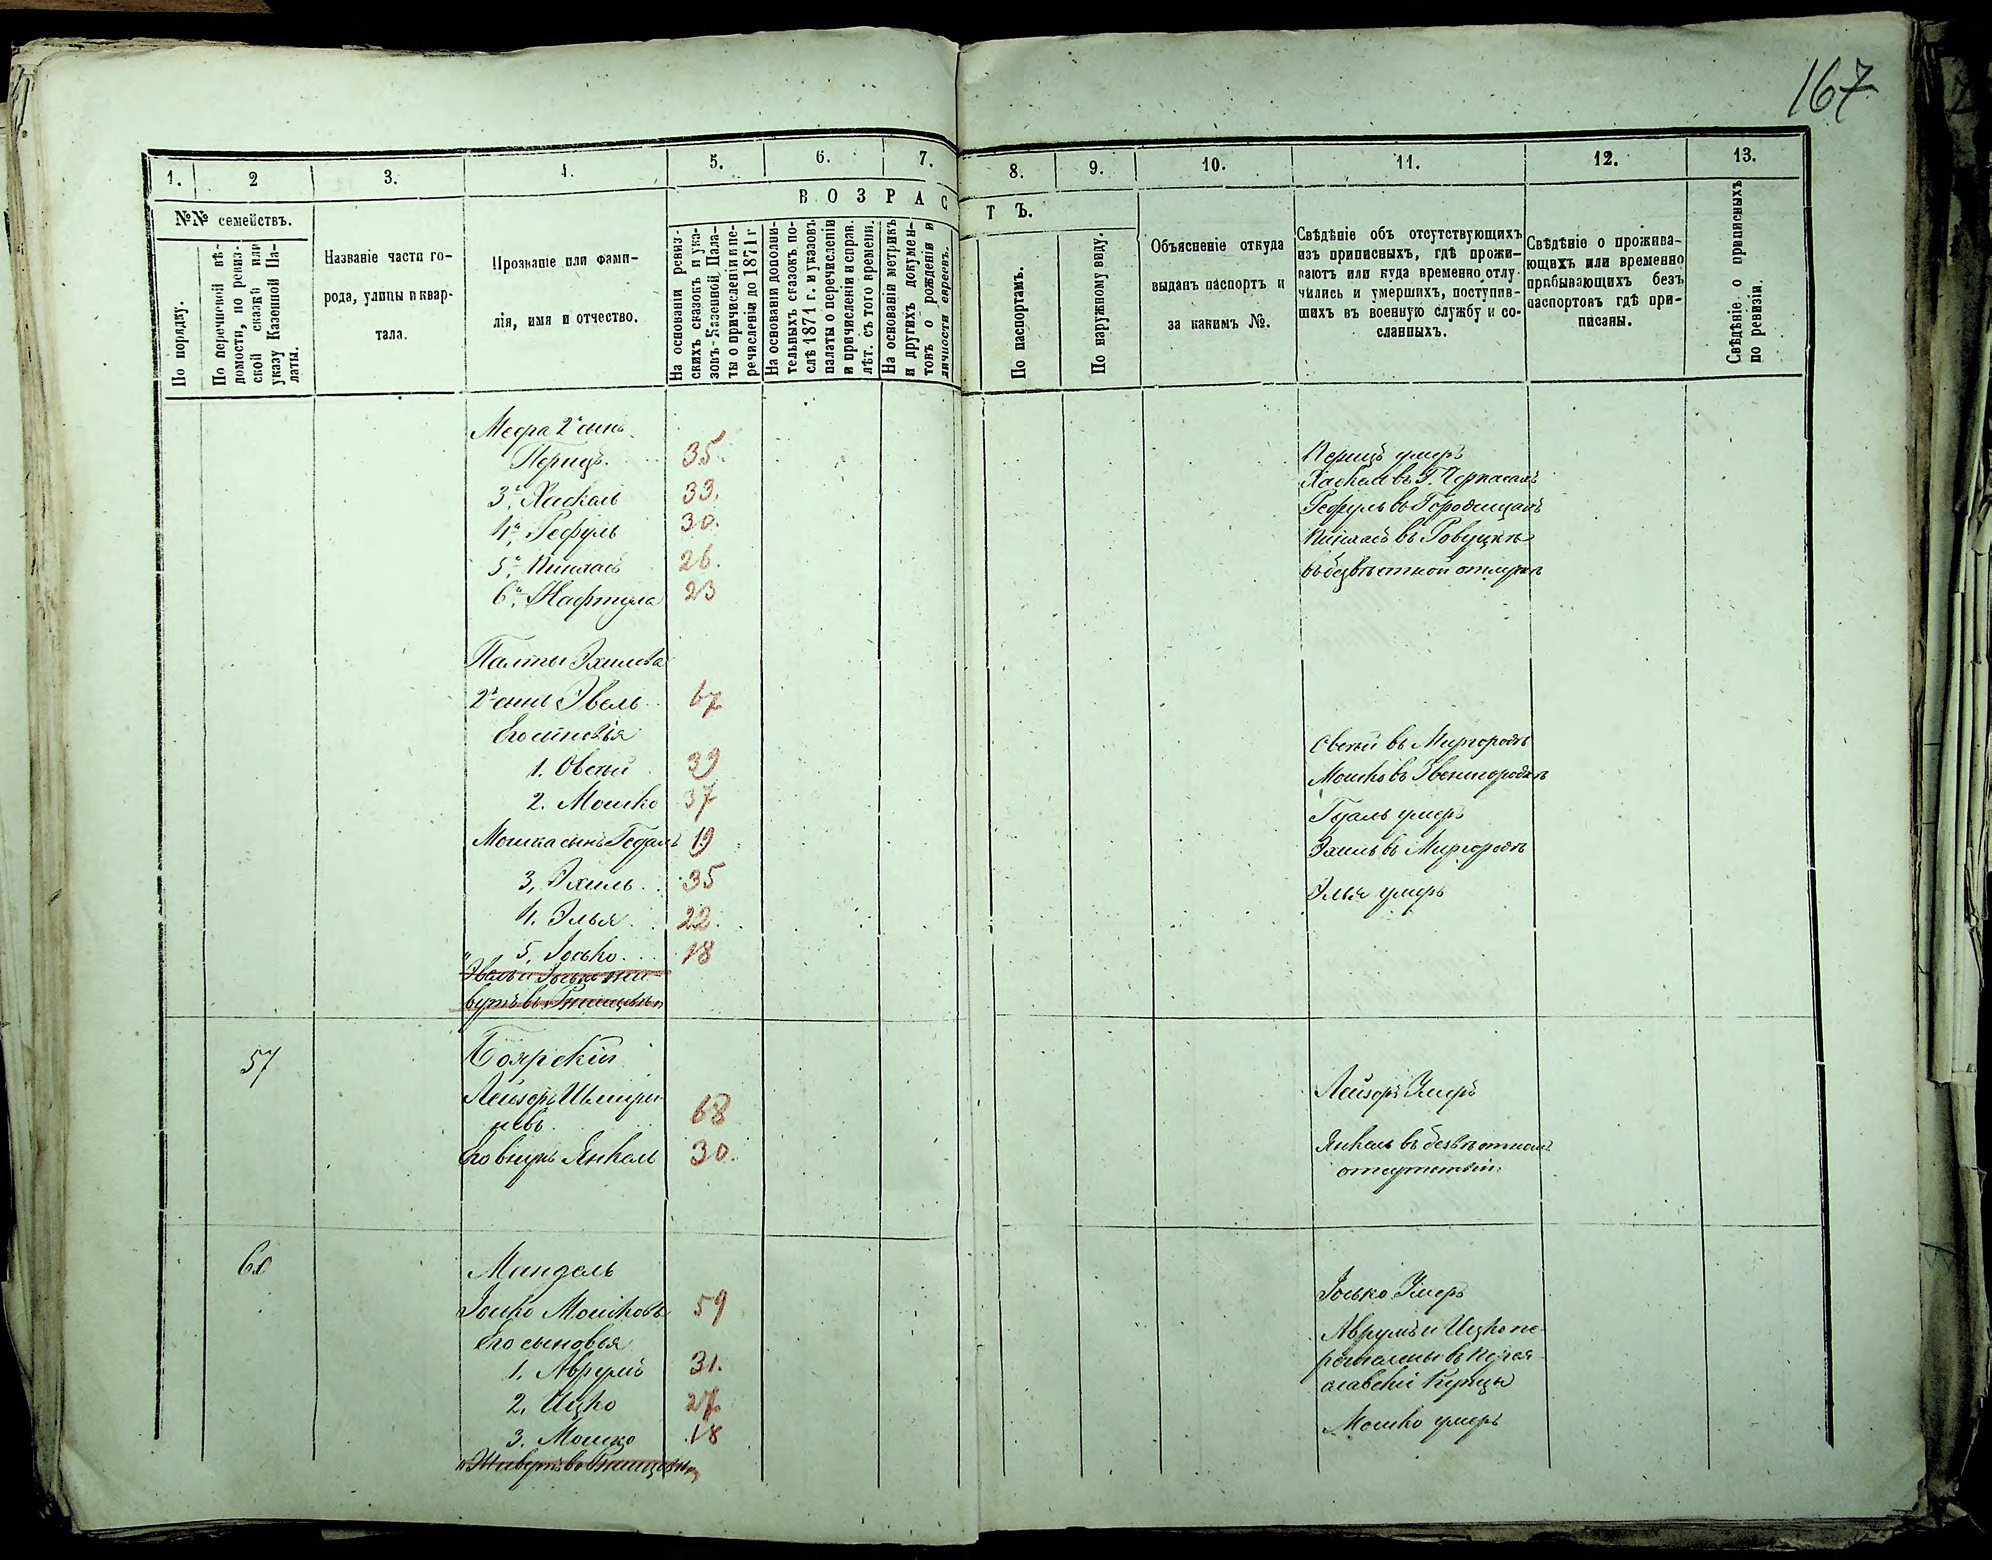 167
1.
2
3.
4.
5.
6.
7.
8.
9.
10.
11.
12.
13.
№№ семействъ.
По порядку.
По перечневой вѣ-
домости, по ревиз-
ской сказкѣ или
указу Казенной Па-
латы.
Названіе части го-
рода, улицы и квар-
тала.
Прозваніе или фами-
лія, имя и отчество.
ВОЗРАСТЪ.
На основаніи ревиз-
скихъ сказокъ и ука-
зовъ Казенной Пала-
ты о причисленіи и пе-
речисленіи до 1871 г
На основаніи дополни-
тельныхъ сказокъ по-
слѣ 1871 г. и указовъ
палаты о перечисленіи
и причисленіи и справ.
лѣт. съ того времени.
На основаніи метрикъ
и другихъ докумен-
товъ о рожденіи и
личности евреевъ.
По паспортамъ.
По наружному виду.
Объясненіе откуда
выданъ паспортъ и
за какимъ №.
Свѣдѣніе объ отсутствующихъ
изъ приписныхъ, гдѣ прожи-
ваютъ или куда временно отлу-
чились и умершихъ, поступив-
шихъ въ военную службу и со-
сланныхъ.
Свѣдѣніе о прожива-
ющихъ или временно
прибывающихъ безъ
паспортовъ гдѣ при-
писаны.
Свѣдѣніе о приписныхъ
по ревизіи.
Меера 2й сынъ
Перицъ. 35. Перицъ умеръ
3й Хаскель 33. Хаскель въ Г. Черкасахъ
4й Рефуль 30. Рефуль въ Городищахъ
5й Пинхасъ 26. Пинхасъ въ Ровуцкѣ
6й Нафтула 23 въ безвѣстной отлучкѣ
Палты Эхилева
2й сынъ Эвель 67
Его сыновья
1. Овсѣй 39 Овсѣй въ Миргородѣ
2. Мошко 37 Мошко въ Звенигородкѣ
Мошка сынъ Гедаль 19 Гдаль умеръ
3, Эхиль 35 Эхиль въ Миргородѣ
4. Элья 22. Элья умеръ
5. Іосько 18
57 Боярскій
Лейзоръ Шмери-
невъ 68 Лейзоръ Умеръ
Его внукъ Янкель 30. Янкель въ безвѣстномъ
отсутствіи.
60 Мандель
Іосько Мошковъ 59 Іосько Умеръ
Его сыновья
1. Аврумъ 31. Аврумъ и Ицко пе-
2. Ицко 27. речислены въ Перея-
славскіе Купцы
3. Мошко 18 Мошко умеръ